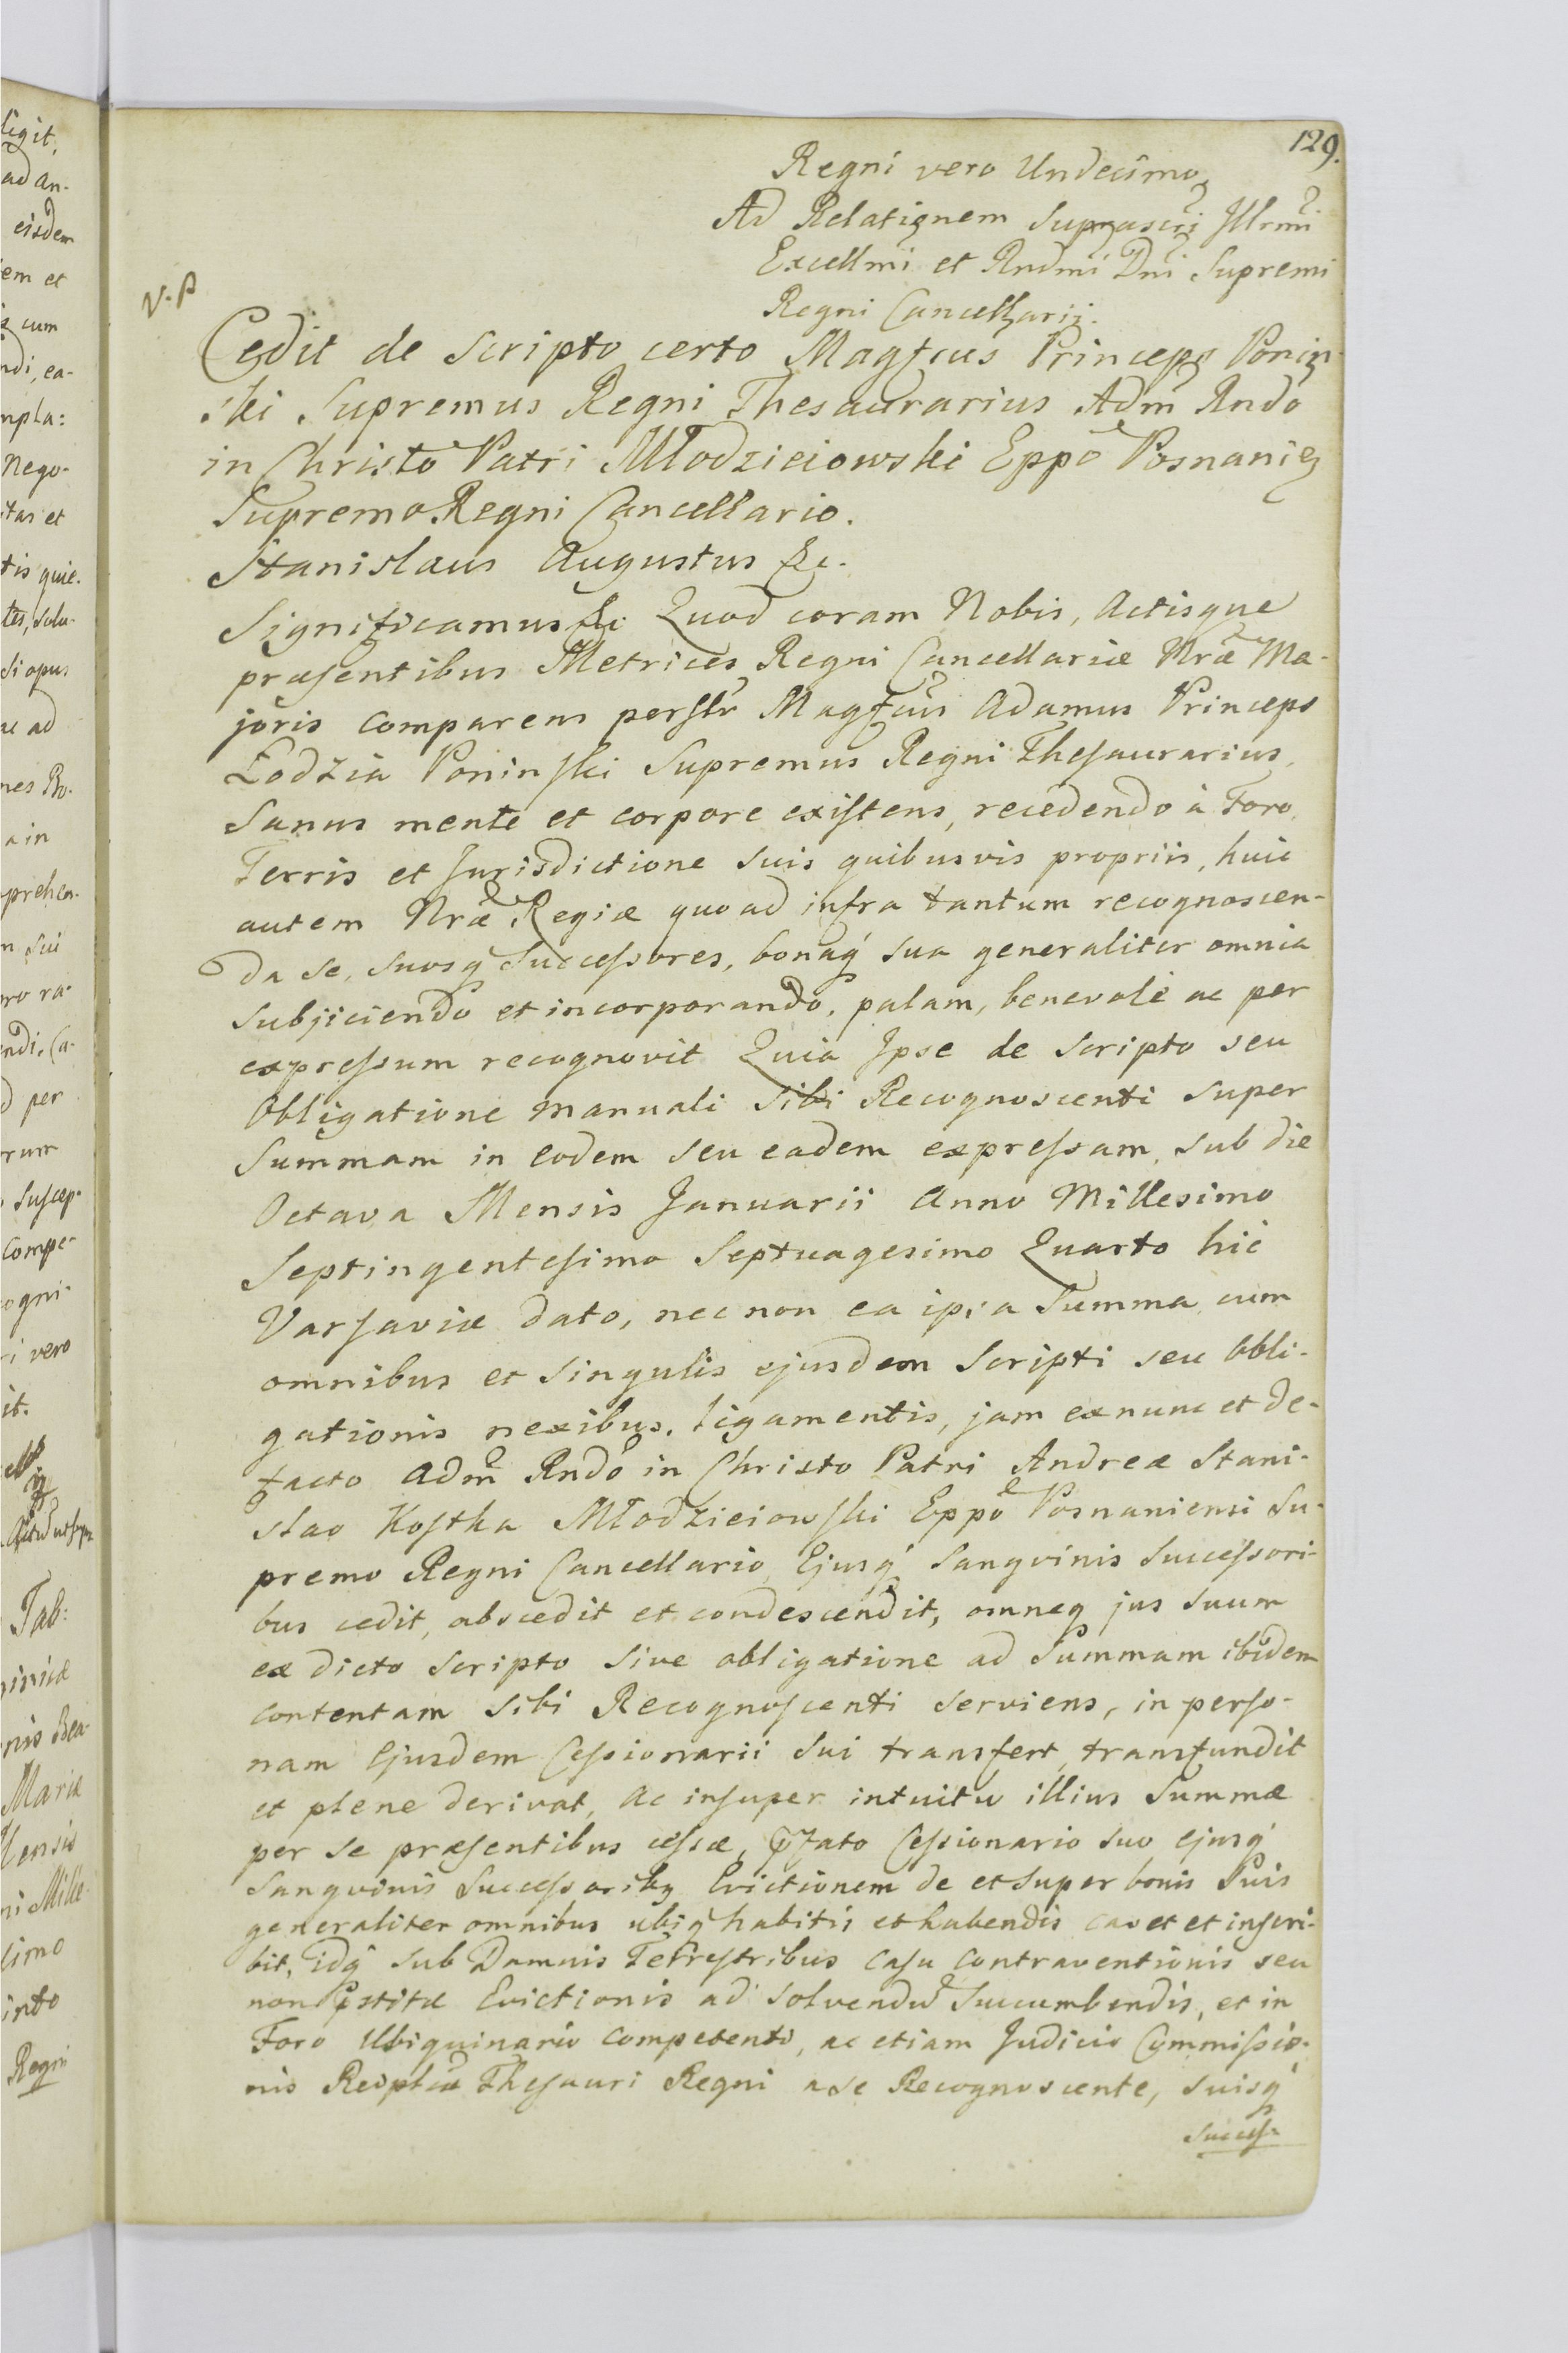 129.
Regni vero Undecimo
Ad Relationem Suprascri Illrmi
Excellmi et Rndmi Dni Supremi
Regni Cancellarii.
Cedit de Scripto certo Magfcus Princeps Ponin-
ski Supremus Regni Thesaurarius Adm Rndo
in Christo Patri Młodzieiowski Eppo Posnanien
Supremo Regni Cancellario.
Stanislaus Augustus &c.
Significamus &c. Quod coram Nobis, Actisque
præsentibus Metrices Regni Cancellariæ Nræ Ma-
joris comparens persltr Magfcus Adamus Princeps
Łodzia Poninski Supremus Regni Thesaurarius,
Sanus mente et corpore existens, recedendo à Foro,
Terris et Jurisdictione suis quibusvis propriis, huic
autem Nræ Regiæ quoad infra tantum recognoscen-
da se, suosq Successores, bonaq sua generaliter omnia
subjiciendo et incorporando, palam, benevolè ac per
expressum recognovit Quia Ipse de Scripto seu
Obligatione manuali sibi Recognoscenti super
Summam in eodem seu eadem expressam, sub die
Octava Mensis Januarii Anno Millesimo
Septingentesimo Septuagesimo Quarto hic
Varsaviæ dato, nec non ea ipsa Summa cum
omnibus et singulis ejusdem Scripti seu Obli-
gationis nexibus, ligamentis, jam exnunc et de-
facto Adm Rndo in Christo Patri Andreæ Stani-
slao Kostka Młodzieiowski Eppo Posnaniensi Su-
premo Regni Cancellario, Ejusq Sangvinis Successori-
bus cedit, abscedit et condescendit, omneq jus suum
ex dicto Scripto sive obligatione ad Summam ibidem
contentam sibi Recognoscenti serviens, in perso-
nam Ejusdem Cessionarii sui transfert, transfundit
et plene derivat, Ac insuper intuitu illius Summæ
per se præsentibus cessæ, pfato Cessionario suo ejusq
Sangvinis Successoribq Evictionem de et super bonis suis
generaliter omnibus ubiq habitis et habendis cavet et inscri-
bit, idq sub Damnis Terrestribus casu contraventionis seu
non pstitæ Evictionis ad solvendu Succumbendis, et in
Foro Ubiquinario competenti, ac etiam Judicio Commissio-
nis Reiplcæ Thesauri Regni a se Recognoscente, suisq
Success-